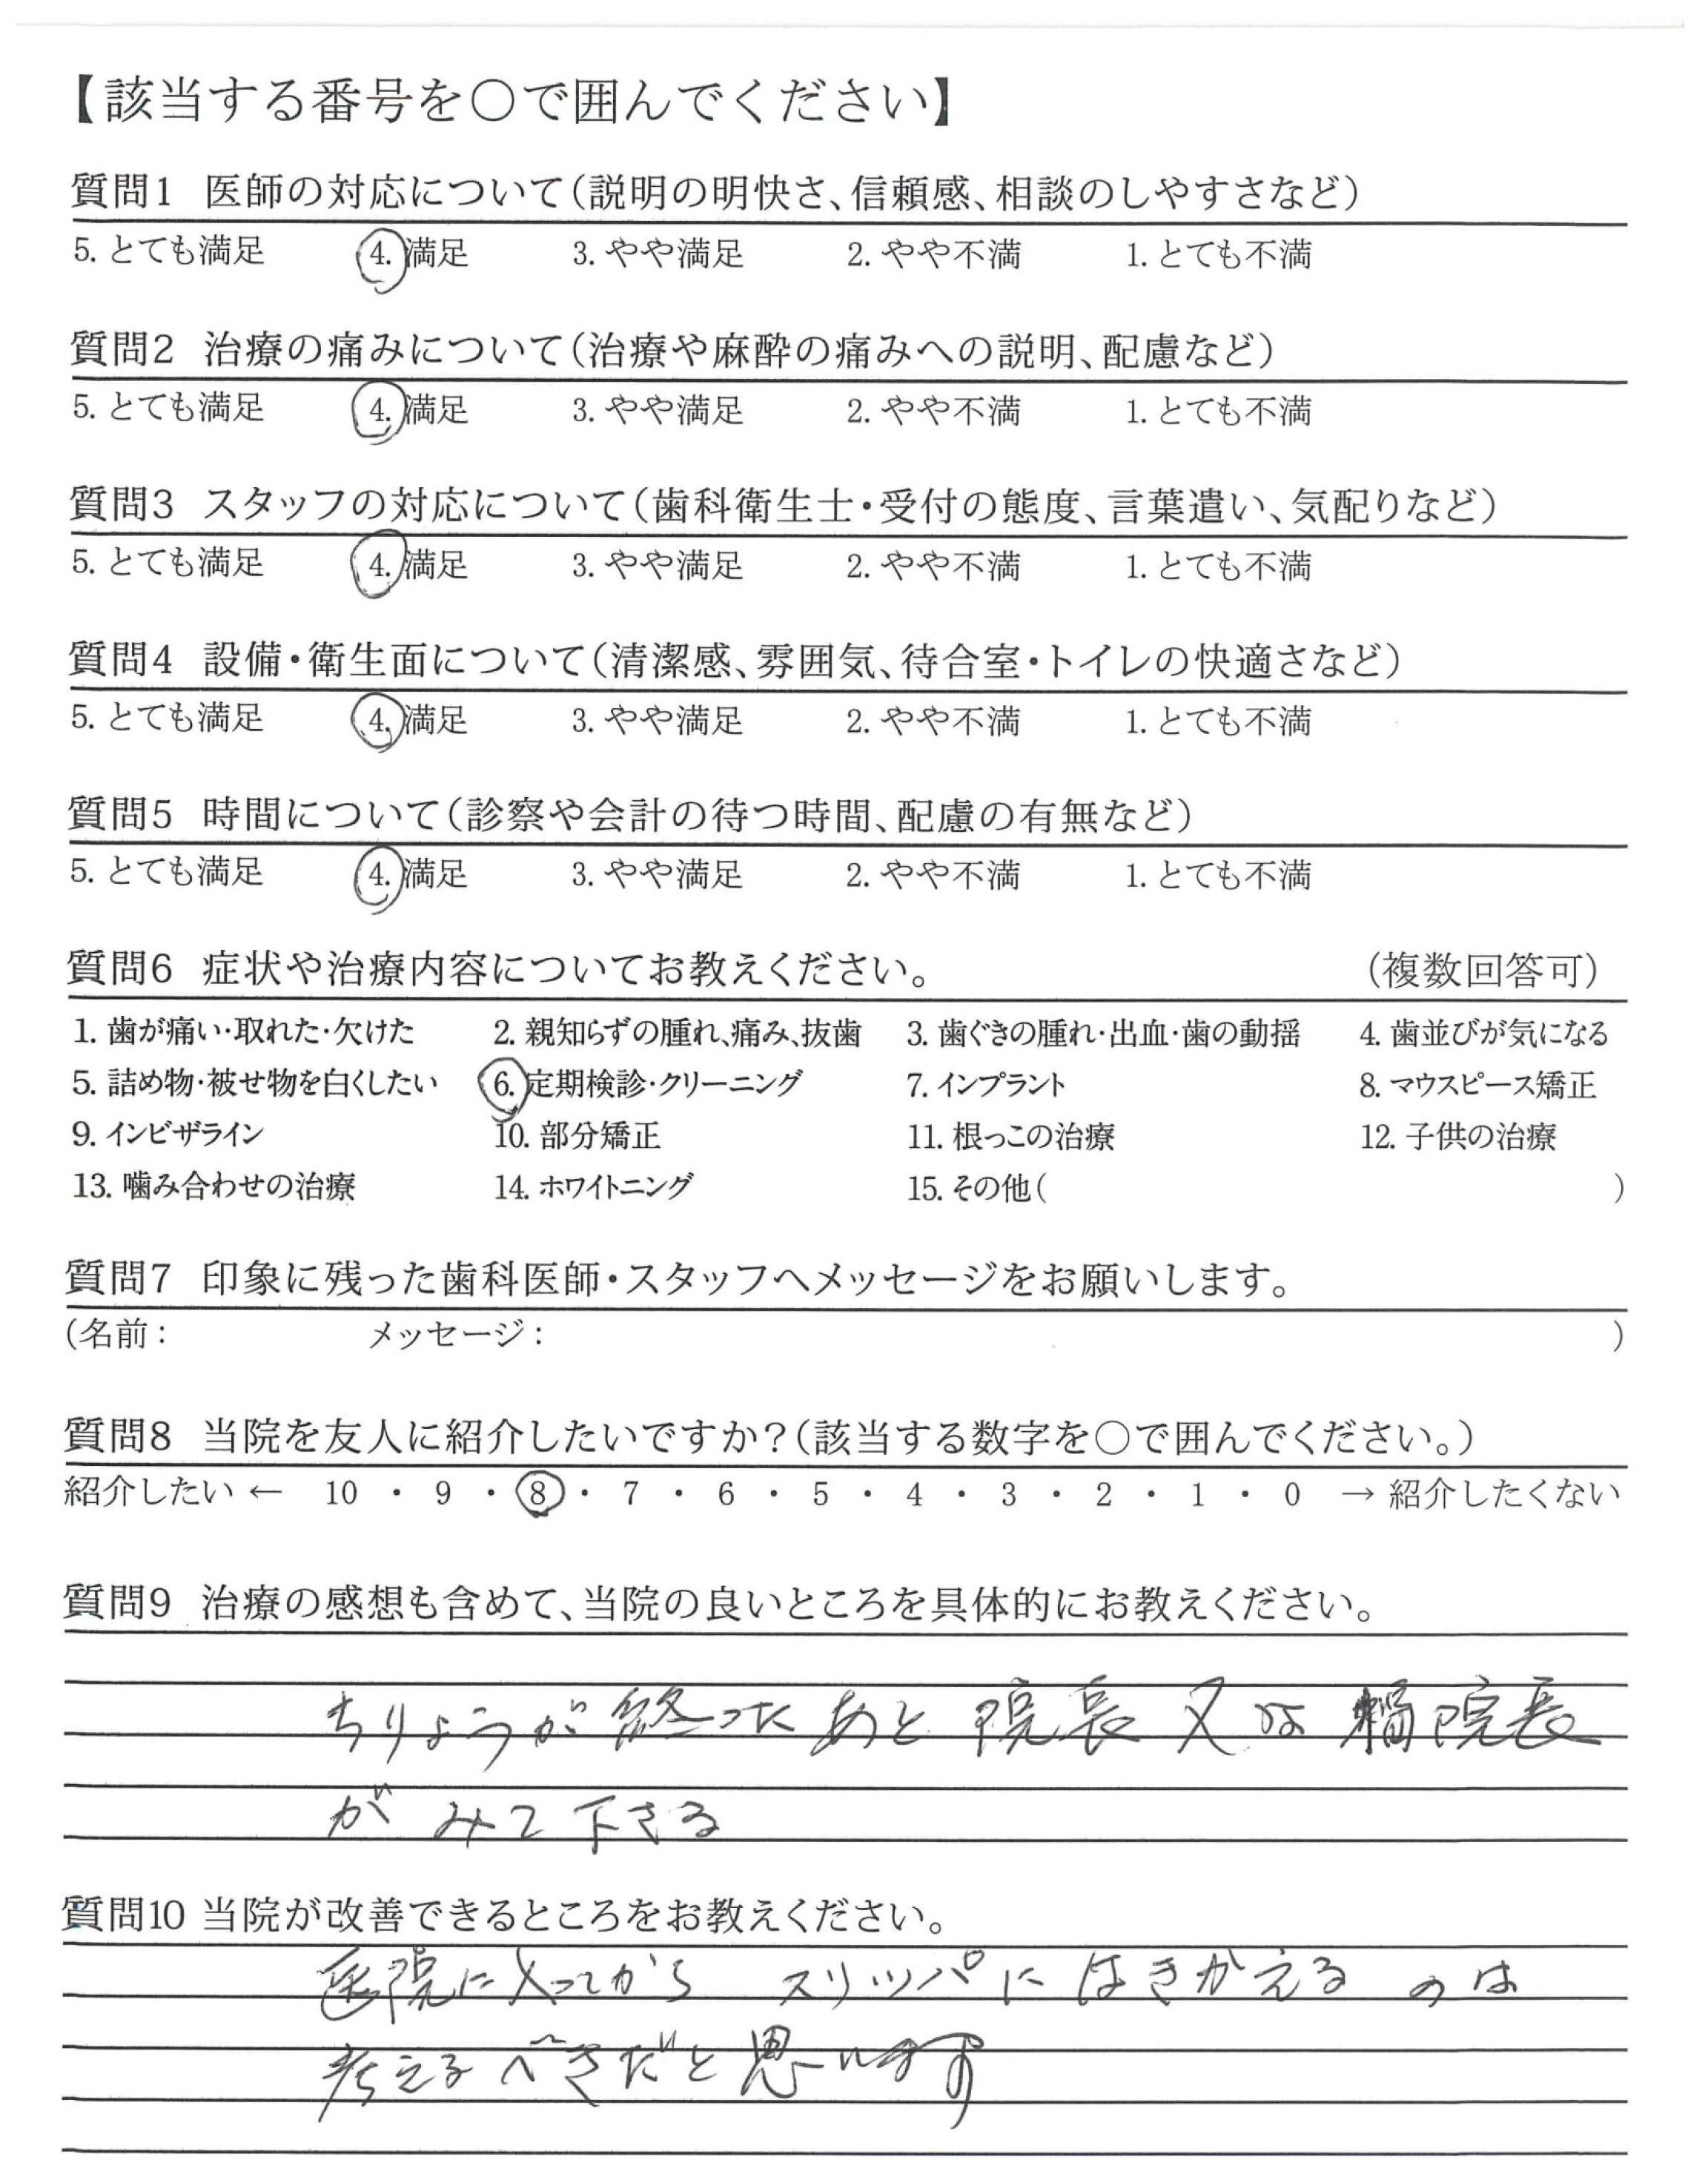 【該当する番号を○で囲んでください】
質問1 医師の対応について(説明の明快さ、信頼感、相談のしやすさなど)
5. とても満足 4. 満足 3. やや満足 2. やや不満 1. とても不満
質問2 治療の痛みについて(治療や麻酔の痛みへの説明、配慮など)
5. とても満足 4. 満足 3. やや満足 2. やや不満 1. とても不満
質問3 スタッフの対応について(歯科衛生士・受付の態度、言葉遣い、気配りなど)
5. とても満足 4. 満足 3. やや満足 2. やや不満 1. とても不満
質問4 設備・衛生面について(清潔感、雰囲気、待合室・トイレの快適さなど)
5. とても満足 4. 満足 3. やや満足 2. やや不満 1. とても不満
質問5 時間について(診察や会計の待つ時間、配慮の有無など)
5. とても満足 4. 満足 3. やや満足 2. やや不満 1. とても不満
質問6 症状や治療内容についてお教えください。 (複数回答可)
1. 歯が痛い・取れた・欠けた 2. 親知らずの腫れ、痛み、抜歯 3. 歯ぐきの腫れ・出血・歯の動揺 4. 歯並びが気になる
5. 詰め物・被せ物を白くしたい 6. 定期検診・クリーニング 7. インプラント 8. マウスピース矯正
9. インビザライン 10. 部分矯正 11. 根っこの治療 12. 子供の治療
13. 噛み合わせの治療 14. ホワイトニング 15. その他( )
質問7 印象に残った歯科医師・スタッフへメッセージをお願いします。
(名前: メッセージ: )
質問8 当院を友人に紹介したいですか?(該当する数字を○で囲んでください。)
紹介したい ← 10 ・ 9 ・ 8 ・ 7 ・ 6 ・ 5 ・ 4 ・ 3 ・ 2 ・ 1 ・ 0 → 紹介したくない
質問9 治療の感想も含めて、当院の良いところを具体的にお教えください。
ちりょうが終ったあと 院長 又は 院長
がみて下さる
質問10 当院が改善できるところをお教えください。
医院に入ってから スリッパにはきかえるのは
考えるべきだと思います